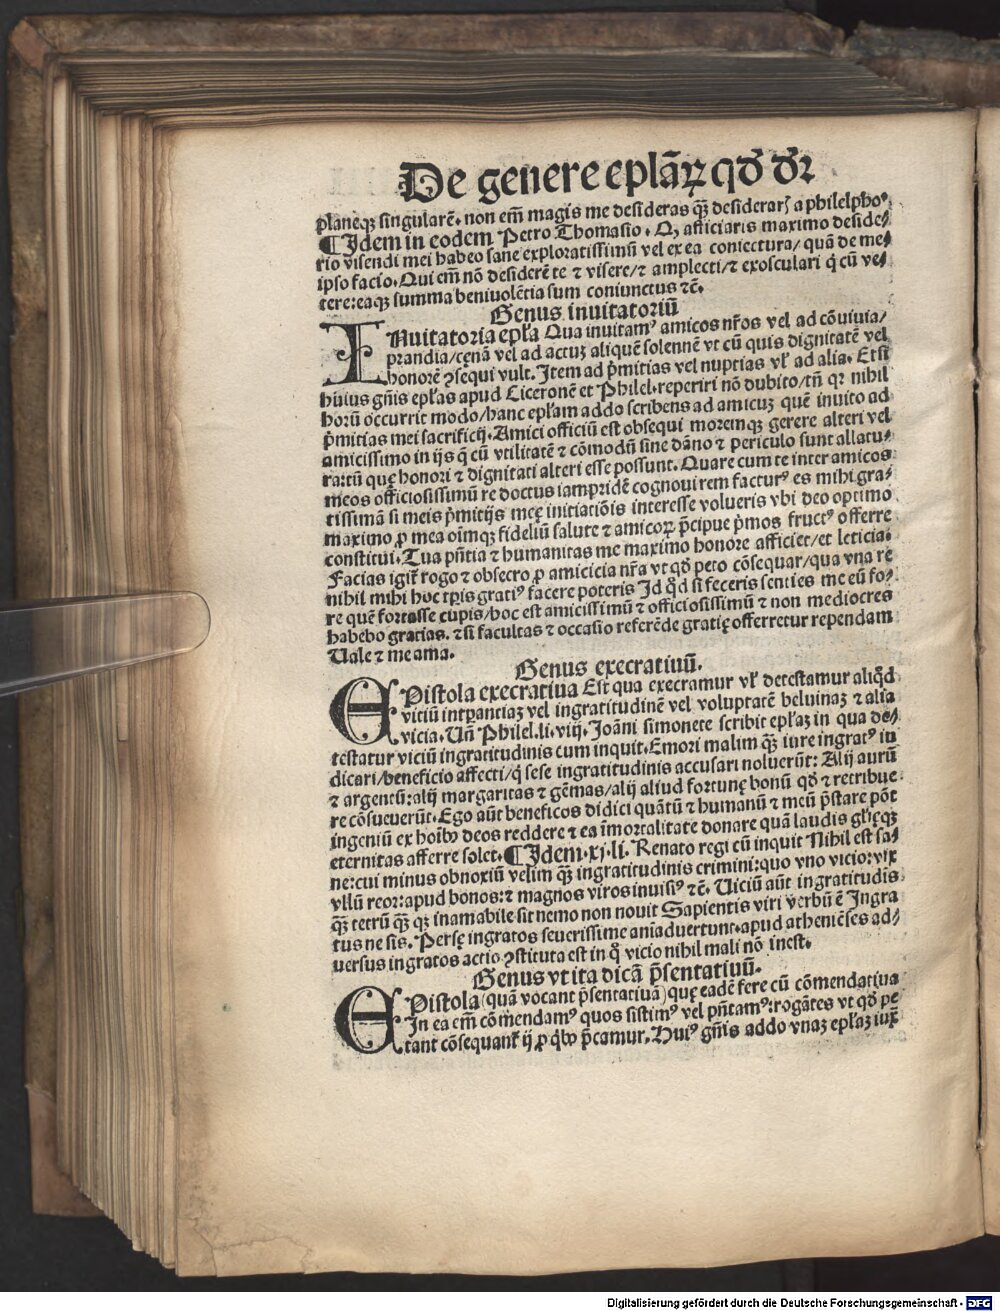 De genere eplaꝝ qđ dr̄
planeqꝫ singularē. non em̄ magis me desideras qꝫ̄ desiderarꝭ a philelpho.
¶ Idem in eodem Petro Thomasio. Qꝫ afficiaris maximo deside⸗
rio visendi mei habeo sane exploratissimū vel ex ea coniectura/ quā de me⸗
ipso facio. Qui em̄ nō desiderē te ⁊ visere/ ⁊ amplecti/ ⁊ exosculari q̇ cū ve⸗
tere: eaqꝫ summa beniuolētia sum coniunctus ⁊c̄.
Genus inuitatoriū
INuitatoria epl̄a Qua inuitamꝰ amicos nr̄os vel ad cōuiuia/
prandia/ cęnā vel ad actuꝫ aliquē solennē vt cū quis dignitatē vel
honorē ꝯsequi vult. Item ad p̄mitias vel nuptias vl̓ ad alia. Etsi
huius gn̄is epl̄as apud Ciceronē et Philel. reperiri nō dubito/ tn̄ qꝛ nihil
horū occurrit modo/ hanc epl̄am addo scribens ad amicuꝫ quē inuito ad
p̄mitias mei sacrificij. Amici officiū est obsequi moremqꝫ gerere alteri vel
amicissimo in ijs q̇ cū vtilitatē ⁊ cōmodū sine dāno ⁊ periculo sunt allatu⸗
ra: tū quę honori ⁊ dignitati alteri esse possunt. Quare cum te inter amicos
meos officiosissimū re doctus iampridē cognoui rem facturꝰ es mihi gra⸗
tissimā si meis p̄mitijs meę initiatiōis interesse volueris vbi deo optimo
maximo ꝓ mea oīmqꝫ fideliū salute ⁊ amicoꝝ p̄cipue p̄mos fructꝰ offerre
constitui. Tua pn̄tia ⁊ humanitas me maximo honore afficiet/ et leticia.
Facias igit̄ rogo ⁊ obsecro ꝓ amicicia nr̄a vt qđ peto cōsequar/ qua vna re
nihil mihi hoc tp̄is gratiꝰ facere poteris Id qđ si feceris senties me eū fo⸗
re quē fortasse cupis/ hoc est amicissimū ⁊ officiosissimū ⁊ non mediocres
habebo gratias. ⁊ si facultas ⁊ occasio referēde gratię offerretur rependam
Uale ⁊ me ama.
Genus execratiuū.
EPistola execratiua Est qua execramur vl̓ detestamur aliqđ
viciū intꝑantiaꝫ vel ingratitudinē vel voluptatē beluinaꝫ ⁊ alia
vicia. Un̄ Philel. li. viij. Joāni simonete scribit epl̄aꝫ in qua de⸗
testatur viciū ingratitudinis cum inquit. Emori malim qꝫ̄ iure ingratꝰ iu
dicari/ beneficio affecti/ q̇ sese ingratitudinis accusari noluerūt: Alij aurū
⁊ argentū: alij margaritas ⁊ gēmas/ alij aliud fortunę bonū qđ ⁊ retribue
re cōsueuerūt. Ego aūt beneficos didici quātū ⁊ humanū ⁊ meū p̄stare pōt
ingeniū ex hoībꝰ deos reddere ⁊ ea īmortalitate donare quā laudis glīęqꝫ
eternitas afferre solet. ¶ Idem. xj. li. Renato regi cū inquit Nihil est sa⸗
ne: cui minus obnoxiū velim qꝫ̄ ingratitudinis crimini: quo vno vicio: vix
vllū reor: apud bonos: ⁊ magnos viros inuisiꝰ ⁊c̄. Uiciū aūt ingratitudis
qꝫ̄ tetrū qꝫ̄ qꝫ inamabile sit nemo non nouit Sapientis viri verbū ē Ingra
tus ne sis. Persę ingratos seuerissime aniaduertunt. apud atheniēses ad⸗
uersus ingratos actio ꝯstituta est in q̊ vicio nihil mali nō inest.
Genus vt ita dicā p̄sentatiuū.
EPistola (quā vocant p̄sentatiuā) quę eadē fere cū cōmendatiua
In ea em̄ cōmendamꝰ quos sistimꝰ vel pn̄tamꝰ: rogātes vt qđ pe
tant cōsequant̄ ij ꝓ qbꝰ p̄camur. Huiꝰ gn̄is addo vnaꝫ epl̄aꝫ iux
Digitalisierung gefördert durch die Deutsche Forschungsgemeinschaft - DFG